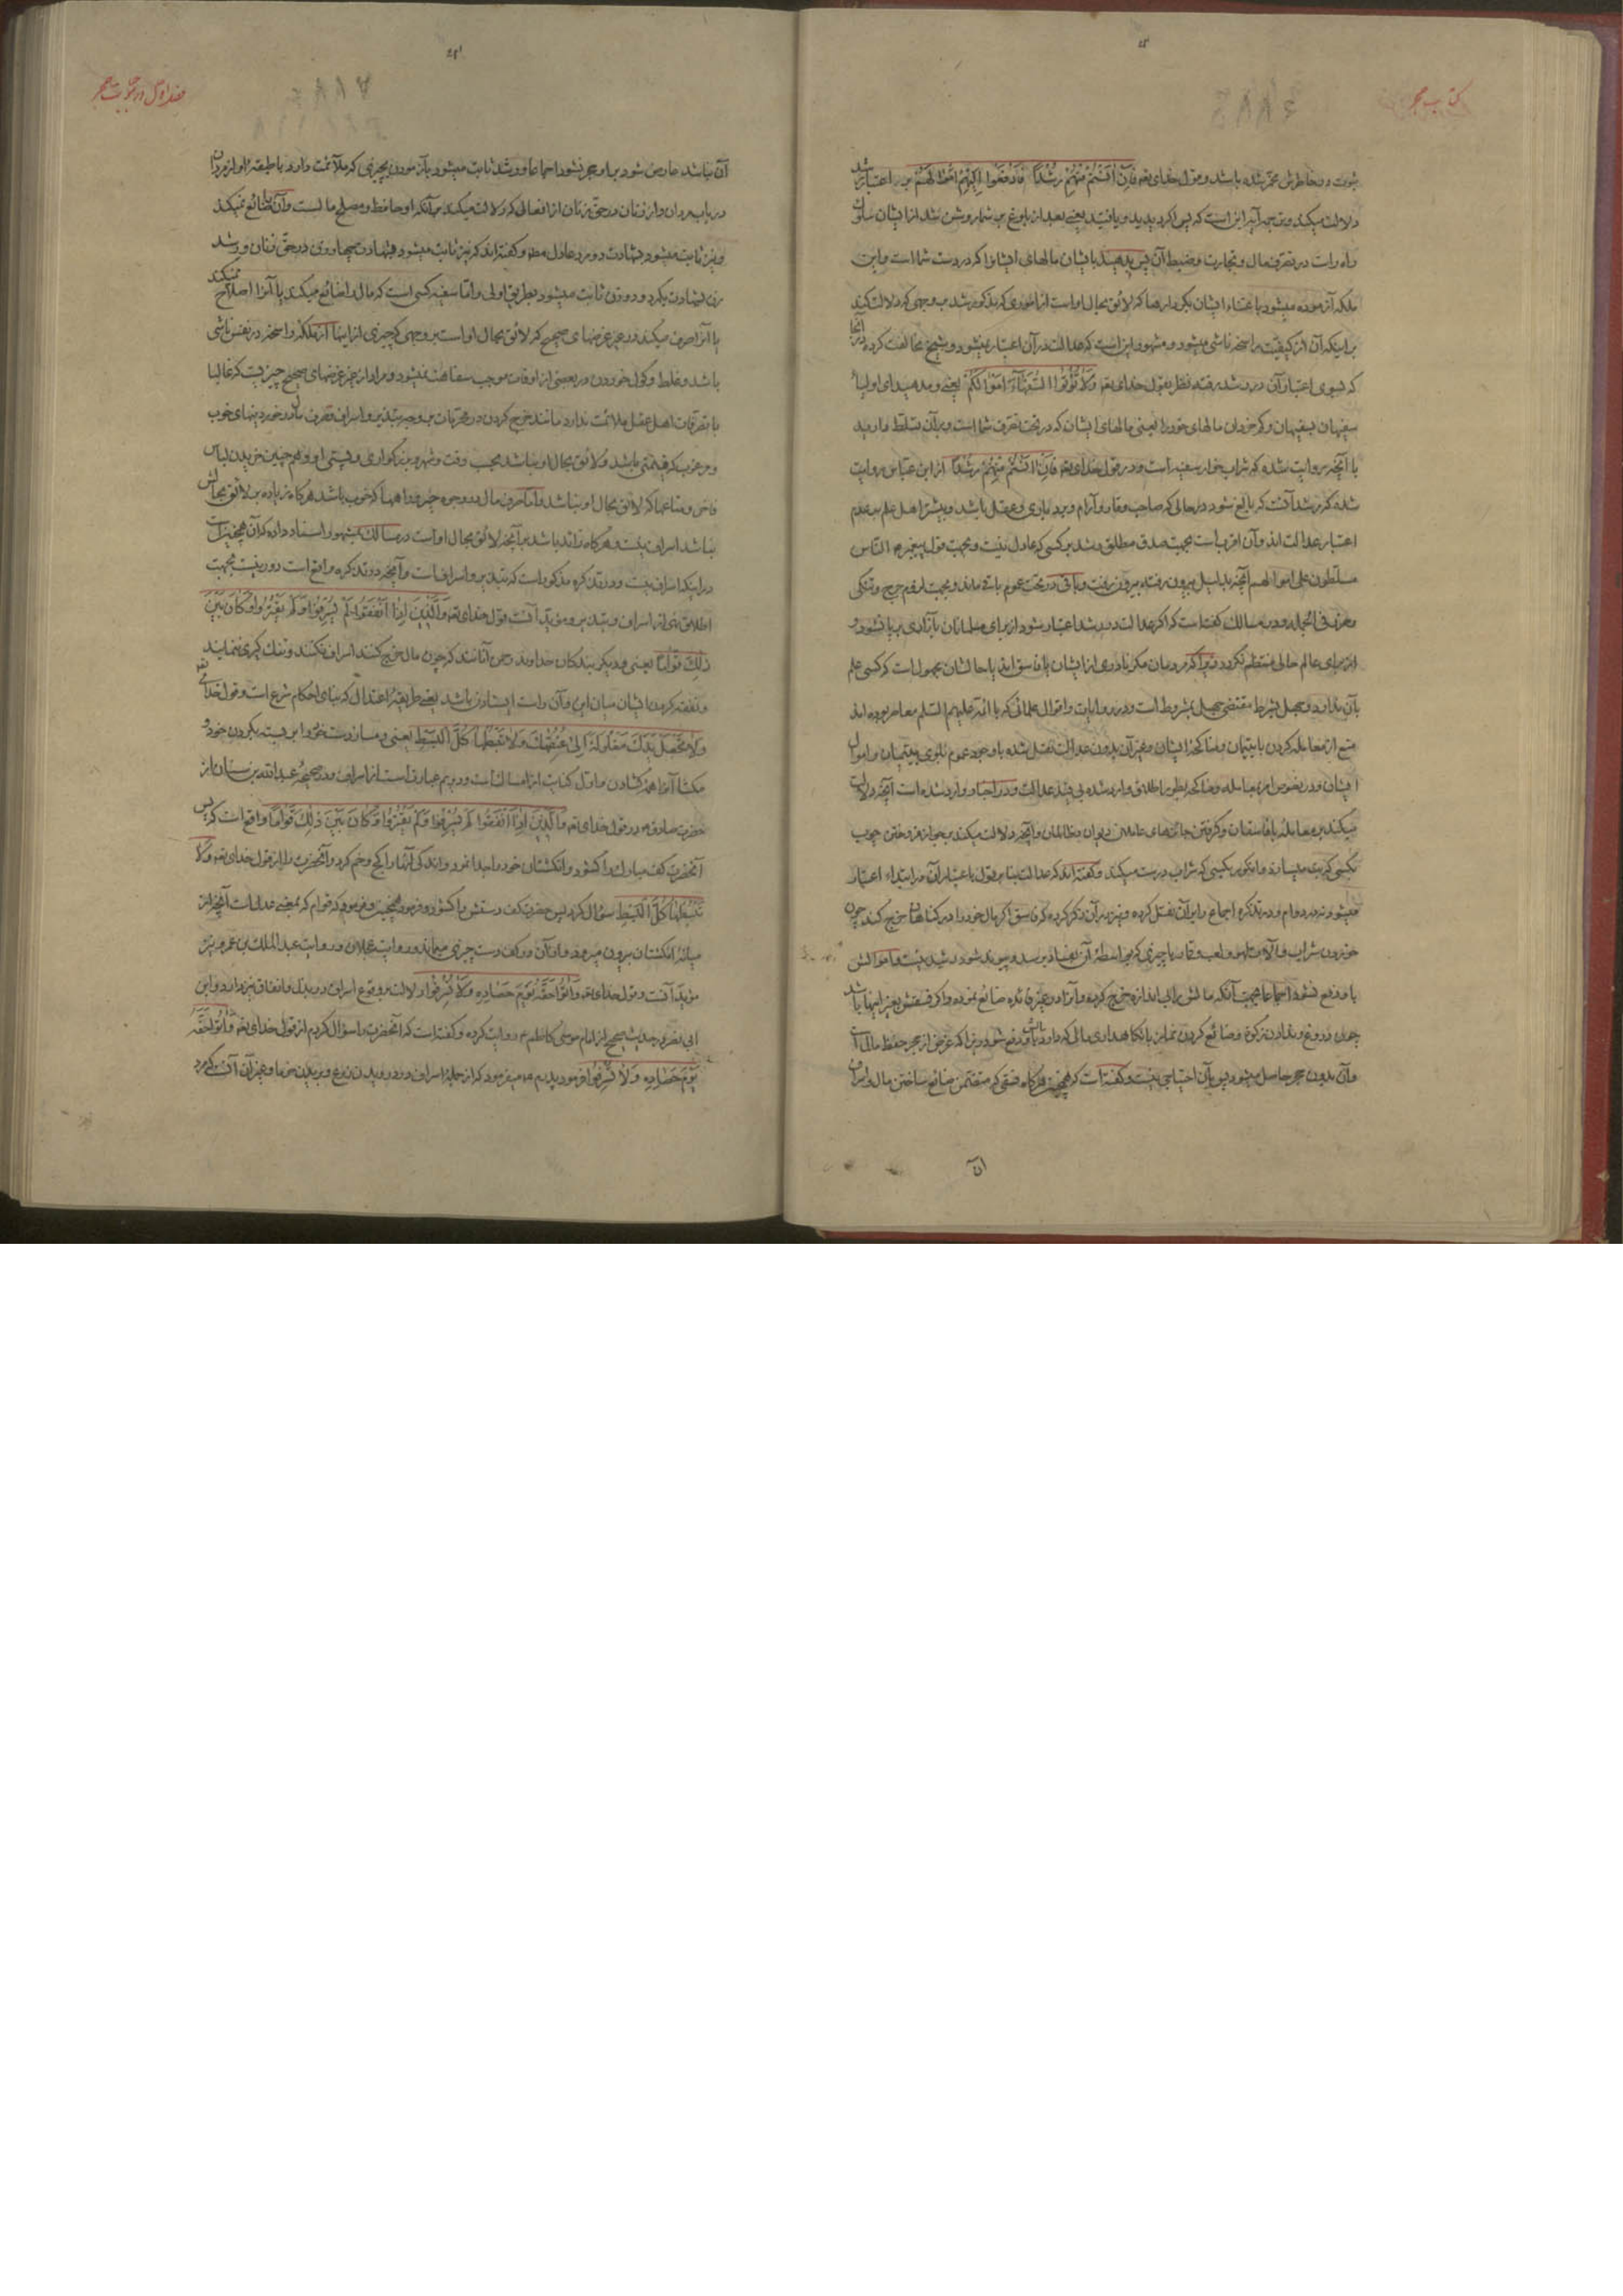 کتاب حجر
ثبوت و در خاطرش مخمّر شده باشد و قول خدای تعه فَاِنْ اٰنَسْتُمْ مِنْهُمْ رُشْداً فَادْفَعُوا اِلَيْهِمْ اَمْوٰالَهُمْ بر اعتبار رشد
دلالت میکند و ترجمه آیه این است که پس اگر دیدید و یافتید یعنی بعد از بلوغ بر شما روشن شد از ایشان سلوک
راه راست در تصرف مال و تجارت و ضبط آن پس بدهید بایشان مالهای ایشانرا که در دست شما است و این
ملکه آزموده میشود باعتناء ایشان بکارها که لائق بحال او است از اموری که مذکور شد بوجهی که دلالت کند
بر اینکه آن از کیفیت راسخه ناشی میشود و مشهور این است که عدالت در آن اعتبار نمیشود و شیخ مخالفت کرده در آنجا
که بسوی اعتبار آن در رشد رفته نظر بقول خدای تعه وَلاٰ تُؤْتُوا السُّفَهٰاءَ اَمْوٰالَكُمْ یعنی و مدهید ای اولیاء
سفیهان بسفیهان و کم خردان مالهای خود را یعنی مالهای ایشان که در تحت تصرف شما است و بر آن تسلط دارید
با آنچه روایت شده که شراب خوار سفیه است و در قول خدای تعه فَاِنْ اٰنَسْتُمْ مِنْهُمْ رُشْداً از ابن عباس روایت
شده که رشد آنست که بالغ شود در حالی که صاحب وقار و آرام و بردباری و عقل باشد و بیشتر اهل علم بر عدم
اعتبار عدالت اند و آن اقرب است بجهت صدق مطلق رشد بر کسی که عادل نیست و بجهت قول پیغمبر ص الناس
مسلطون علی اموالهم آنچه بدلیل بیرون رفته بیرون رفت و باقی در تحت عموم باقی ماند و بجهت لزوم حرج و تنگی
معروف فی الجمله و در مسالک گفته است که اگر عدالت در رشد اعتبار شود از برای مسلمانان بازاری برپا نشود و
از برای عالم حالی منتظم نگردد زیرا که مردمان مگر نادری از ایشان یا فاسق اند یا حالشان مجهول است که کسی علم
بآن ندارد و جهل بشرط مقتضی جهل بمشروط است و در روایات و اقوال علمائی که با ائمه علیهم السلم معاصر بوده اند
منع از معامله کردن با یتیمان و مناکحه ایشان و غیر آن بدون عدالت نقل نشده با وجود عموم بلوی بیتیمان و اموال
ایشان و در نصوص امر بمعامله و مناکحه بطور اطلاق وارد شده بی قید عدالت و در اخبار وارد شده است آنچه دلالت
میکند بر معامله با فاسقان و گرفتن جائزهای عاملین دیوان و ظالمان و آنچه دلالت میکند بر جواز فروختن چوب
بکسی که بت میسازد و انگور بکسی که شراب درست میکند و گفته اند که عدالت بنا بر قول باعتبار آن در ابتداء اعتبار
میشود نه در دوام و در تذکره اجماع را بر آن نقل کرده و نیز در آن ذکر کرده که فاسق اگر مال خود را در گناهان خرج کند چون
خوردن شراب و آلات لهو و لعب و قمار یا چیزی که بواسطهٔ آن بفساد برسد و پیوند شود رشید نیست و اموالش
باو دفع نشود اجماعا بجهت آنکه مالش را بی اندازه خرج کرده و آنرا در غیر فائده ضائع نموده و اگر فسقش بغیر اینها باشد
چون دروغ و ندادن زکوة و ضائع کردن نماز با نگاهداری مالی که دارد باو دفع شود زیرا که غرض از حجر حفظ مال است
و آن بدون حجر حاصل میشود پس بآن احتیاجی نیست و گفته است که همچنین هر گاه فسقی که متضمن ضائع ساختن مال و اسراف
آن
فصل اول در ثبوت حجر
آن نباشد عارض شود بر او حجر نشود اجماعا و رشد ثابت میشود بآزمودن بچیزی که ملائمت دارد با طبقهٔ او از مردان
در باب مردان و از زنان در حق زنان از افعالی که دلالت میکند بر آنکه او حافظ و مصلح مالست و آن را ضائع نمیکند
و نیز ثابت میشود بشهادت دو مرد عادل مطه و گفته اند که نیز ثابت میشود بشهادت چهار زن در حق زنان و رشد
زن بشهادت یکمرد و دو زن ثابت میشود بطریق اولی و اما سفیه کسی است که مال را ضائع میکند یا آنرا اصلاح نمیکند
یا آنرا صرف میکند در غیر غرضهای صحیح که لائق بحال او است بر وجهی که چیزی از اینها از ملکهٔ راسخه در نفس ناشی
باشد و غلط و گول خوردن در بعضی از اوقات موجب سفاهت نمیشود و مراد از غیر غرضهای صحیح چیزیست که غالبا
با تصرفات اهل عقل ملائمت ندارد مانند خرج کردن در محرمات بر وجه تبذیر و اسراف و صرف مال در خوردنیهای خوب
و مرغوب که قیمتی باشد و لائق بحال او نباشد بحسب وقت و شهر و بزرگواری و پستی او و همچنین خریدن لباس
فاخر و متاعها که لائق بحال او نباشد و اما صرف مال در وجوه خیر و راهها که خوب باشد هر گاه زیاده بر لائق بحالش
نباشد اسراف نیست و هر گاه زائد باشد بر آنچه لائق بحال او است در مسالک بمشهور اسناد داده که آن همچنین است
در اینکه اسراف نیست و در تذکره مذکور است که تبذیر و اسراف است و آنچه در تذکره واقع است دور نیست بجهت
اطلاق نهی از اسراف و تبذیر و مؤید آنست قول خدای تعه وَالَّذِينَ اِذٰا اَنْفَقُوا لَمْ يُسْرِفُوا وَلَمْ يَقْتُرُوا وَكٰانَ بَيْنَ
ذٰلِكَ قَوٰاماً یعنی و دیگر بندگان خداوند رحمن آنانند که چون مال خرج کنند اسراف نکنند و تنگ گیری ننمایند
و نفقه کردن ایشان میان این و آن راست ایستادن باشد یعنی طریقهٔ اعتدال که بنای احکام شرع است و قول خدای تعه
وَلاٰ تَجْعَلْ يَدَكَ مَغْلُولَةً اِلىٰ عُنُقِكَ وَلاٰ تَبْسُطْهٰا كُلَّ الْبَسْطِ یعنی و مساز دست خود را بر بسته بگردن خود و
مگشا آنرا همه گشادن و اول کنایت از امساک است و دویم عبارت است از اسراف و در صحیحهٔ عبدالله بن سنان از
حضرت صادق ع در قول خدای تعه وَالَّذِينَ اِذٰا اَنْفَقُوا لَمْ يُسْرِفُوا وَلَمْ يَقْتُرُوا وَكٰانَ بَيْنَ ذٰلِكَ قَوٰاماً واقع است که پس
آنحضرت کف مبارک را گشود و انگشتان خود را جدا نمود و اندکی آنها را کج و خم کرد و آنحضرت را از قول خدای تعه وَلاٰ
تَبْسُطْهٰا كُلَّ الْبَسْطِ سؤال کرد پس حضرت کف دستش را گشود و فرمود همچنین و فرمود که قوام که بمعنی عدل است آنچه از
میانهٔ انگشتان بیرون میرود و از آن در کف دست چیزی میماند و روایت عجلان و روایت عبدالملک بن عمرو نیز
مؤید آنست و قول خدای تعه وَآتُوا حَقَّهُ يَوْمَ حَصٰادِهِ وَلاٰ تُسْرِفُوا دلالت بر وقوع اسراف در بذل و انفاق نیز دارد و ابن
ابی نصر بحدیث صحیح از امام موسی کاظم ع روایت کرده و گفته است که آنحضرت را سؤال کردم از قول خدای تعه وَآتُوا حَقَّهُ
يَوْمَ حَصٰادِهِ وَلاٰ تُسْرِفُوا فرمود پدرم ع میفرمود که از جملهٔ اسراف در درویدن زرع و بریدن خرما و غیر آن آنست که مرد